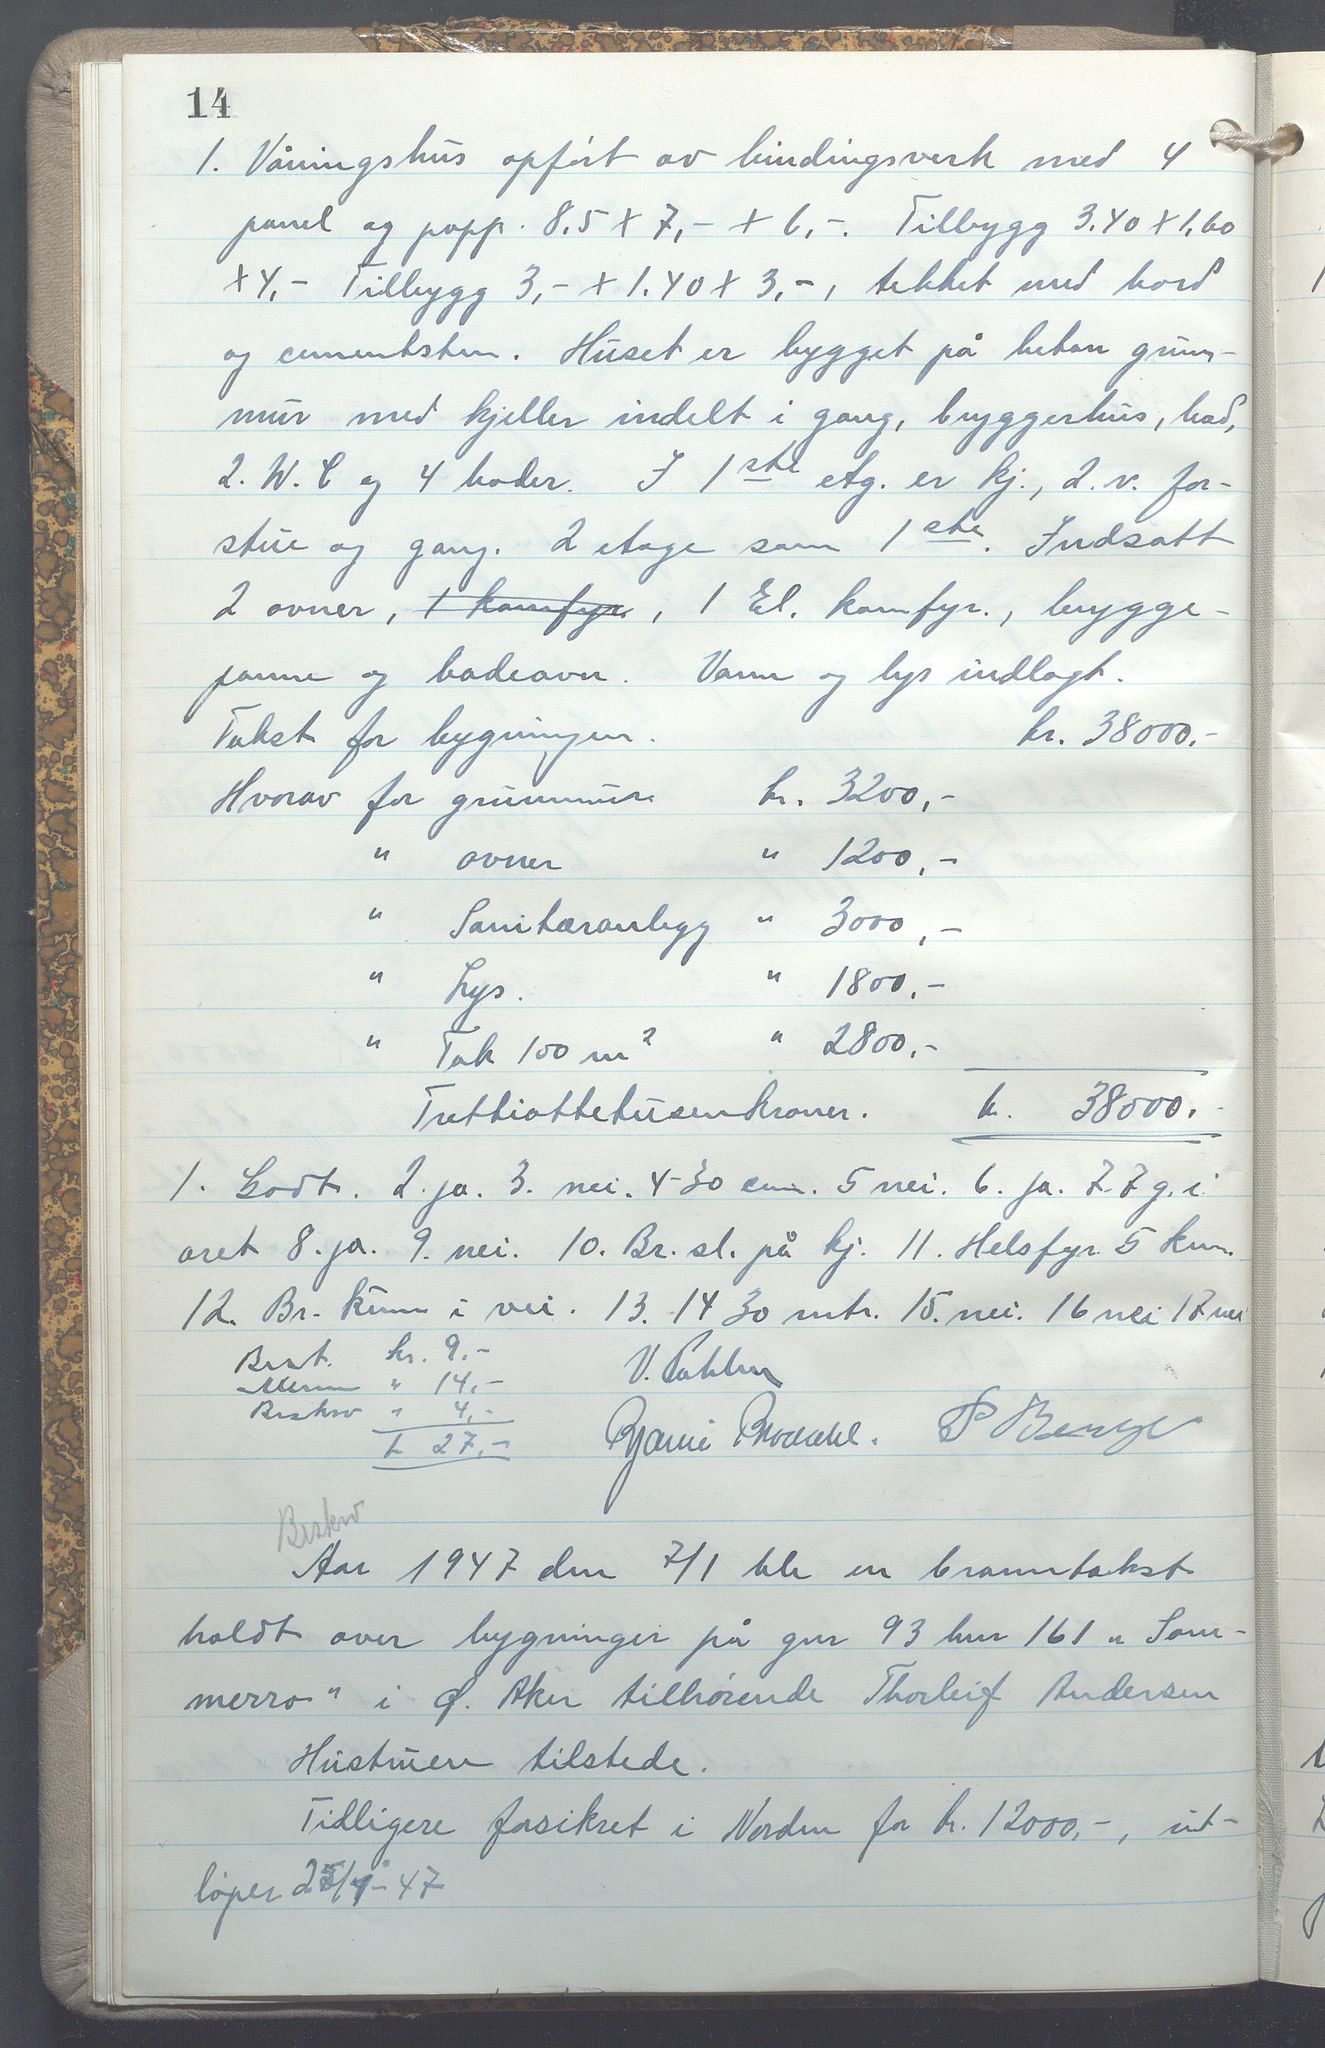 14
1. Våningshus opført av bindingsverk med 4
panel og papp. 8,5 x 7,- x 6,-. Tilbygg 3.40 x 1,60
x 4,- Tilbygg 3,- x 1.40 x 3,-, tekket med bord
og cementsten. Huset er bygget på beton grun-
mur med kjeller indelt i gang, bryggerhus, bad,
2. W. C og 4 boder. I 1ste etg. er kj., 2. v. for-
stue og gang. 2 etage som 1ste. Indsatt
2 ovner, 1 komfyr, 1 El. komfyr., brygge-
panne og badeovn. Vann og lys indlagt.
Takst for bygningen. kr. 38000.-
Hvorav for grunnmur kr. 3200,-
" ovner " 1200,-
" Sanitæranlegg " 3000,-
" Lys. " 1800,-
" Tak 100 m2 " 2800,-
Trettiottetusenkroner. kr. 38000,-
1. Godt. 2. ja. 3. nei. 4-30 cm. 5 nei. 6. ja. 7. 7 g. i
aret 8. ja. 9. nei. 10. Br. sl. på kj. 11. Helsfyr 5 km.
12. Br. kum i vei. 13. 14 30 mtr. 15. nei. 16 nei 17 nei
Best. kr. 9,-
" 14,-
Beskrv " 4,-
k 27,-
Bjarne Brodahl.
Beskrv
Aar 1947 den 7/1 ble en branntakst
holdt over bygninger på gnr 93 bnr 161 "Som-
merro" i Ø. Aker tilhørende Thorleif Andersen
Hustruen tilstede.
Tidligere forsikret i Norden for kr. 12000,-, ut-
løper - 47